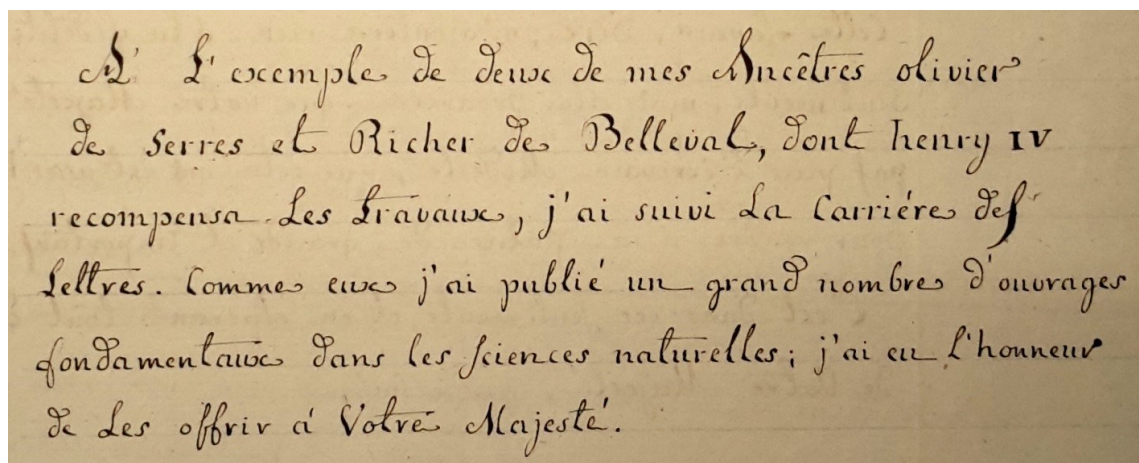 A' L'exemple de deux de mes Ancêtres olivier
de Serres et Richer de Belleval, dont henry IV
recompensa Les travaux, j'ai suivi La Carriére des
Lettres. Comme eux j'ai publié un grand nombre d'ouvrages
fondamentaux dans les sciences naturelles; j'ai eu L'honneur
de Les offrir á Votre Majesté.